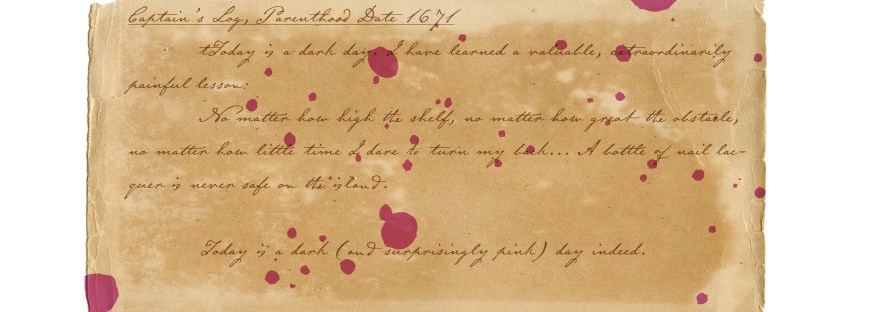 Captain's Log, Parenthood Date 1671
Today is a dark day. I have learned a valuable, extraordinarily
painful lesson:
No matter how high the shelf, no matter how great the obstacle,
no matter how little time I dare to turn my back... A bottle of nail lac-
quer is never safe on the island.
Today is a dark (and surprisingly pink) day indeed.